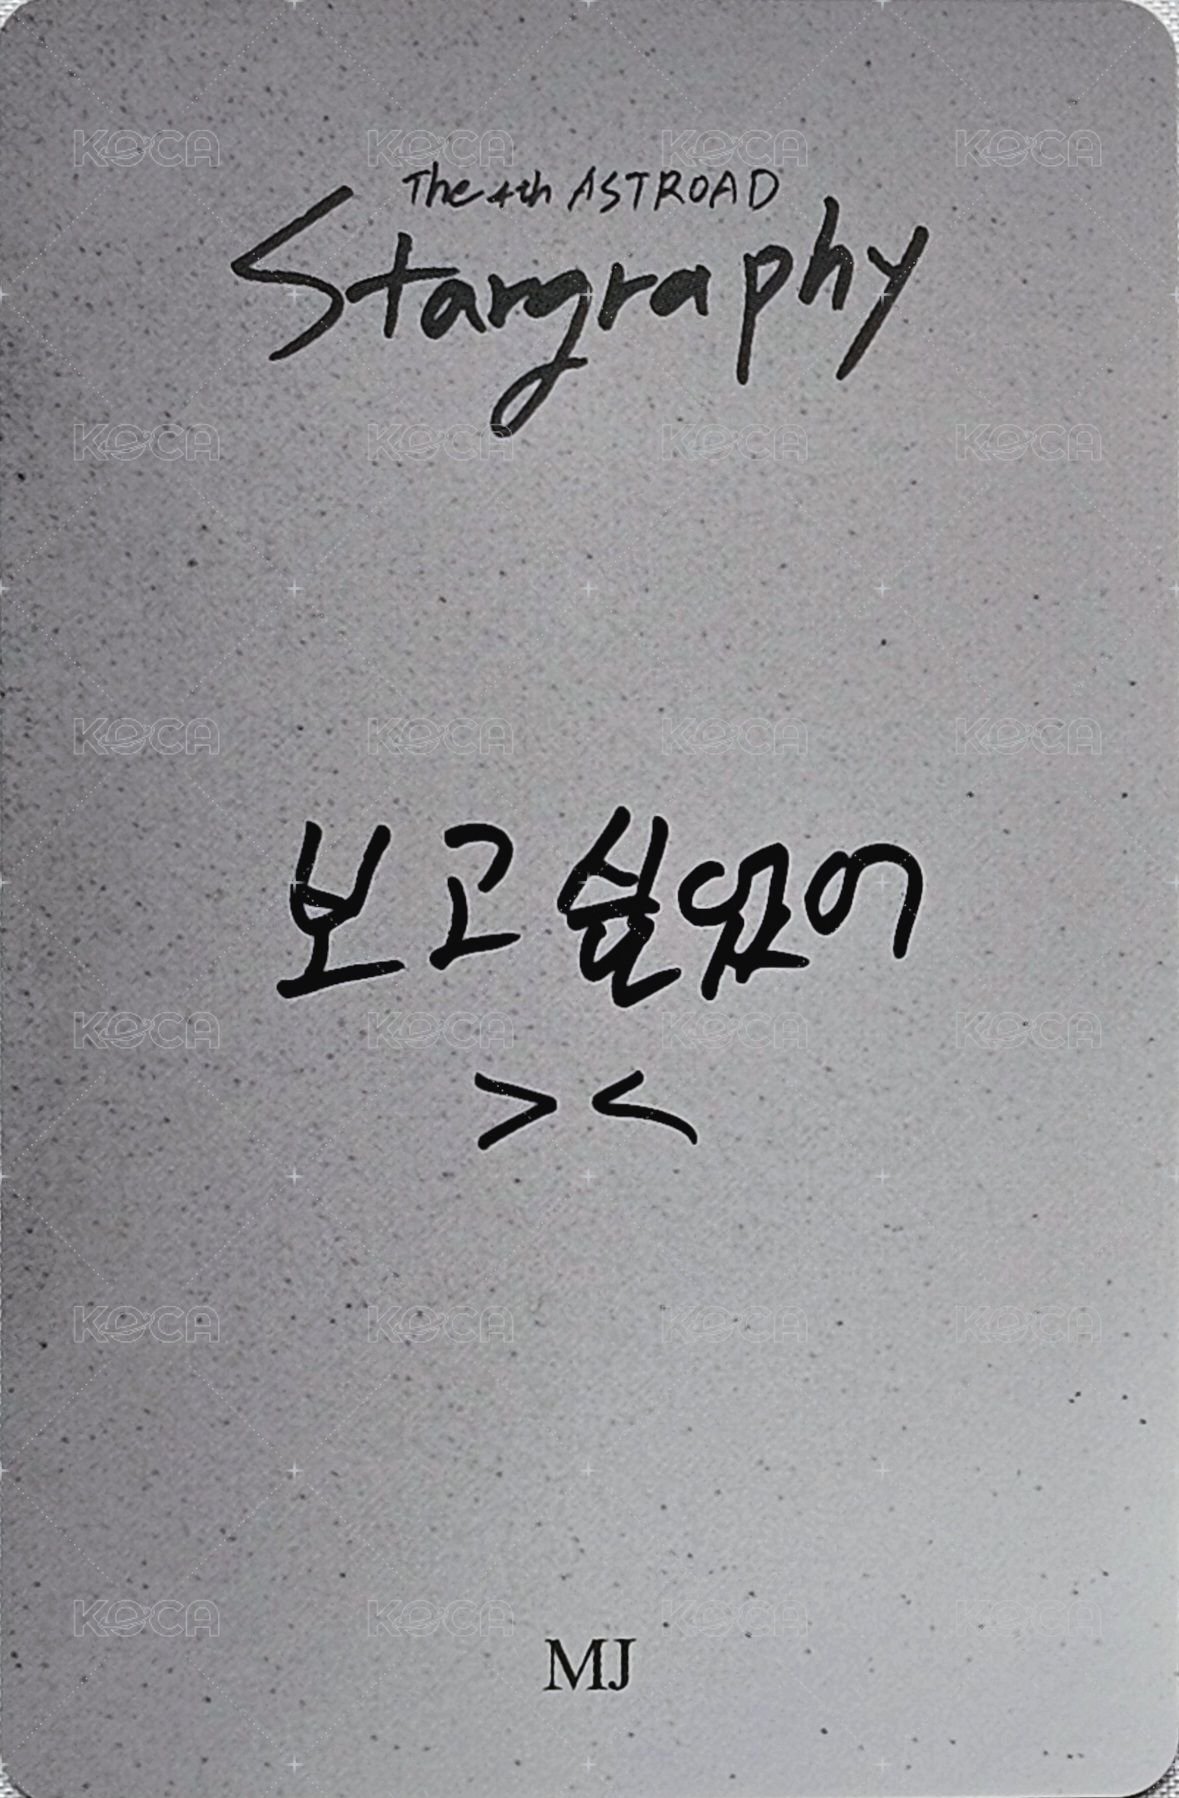 KOCA KOCA KOCA KOCA
The 4th ASTROAD
Stargraphy
KOCA KOCA KOCA KOCA
KOCA KOCA KOCA KOCA
보고싶었어
KOCA KOCA KOCA KOCA
> <
KOCA KOCA KOCA KOCA
KOCA KOCA KOCA KOCA
MJ